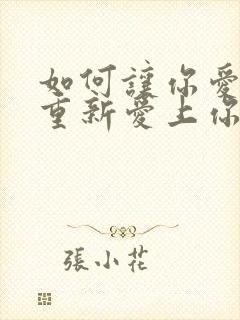 如何讓你愛
重新愛上你
張小花